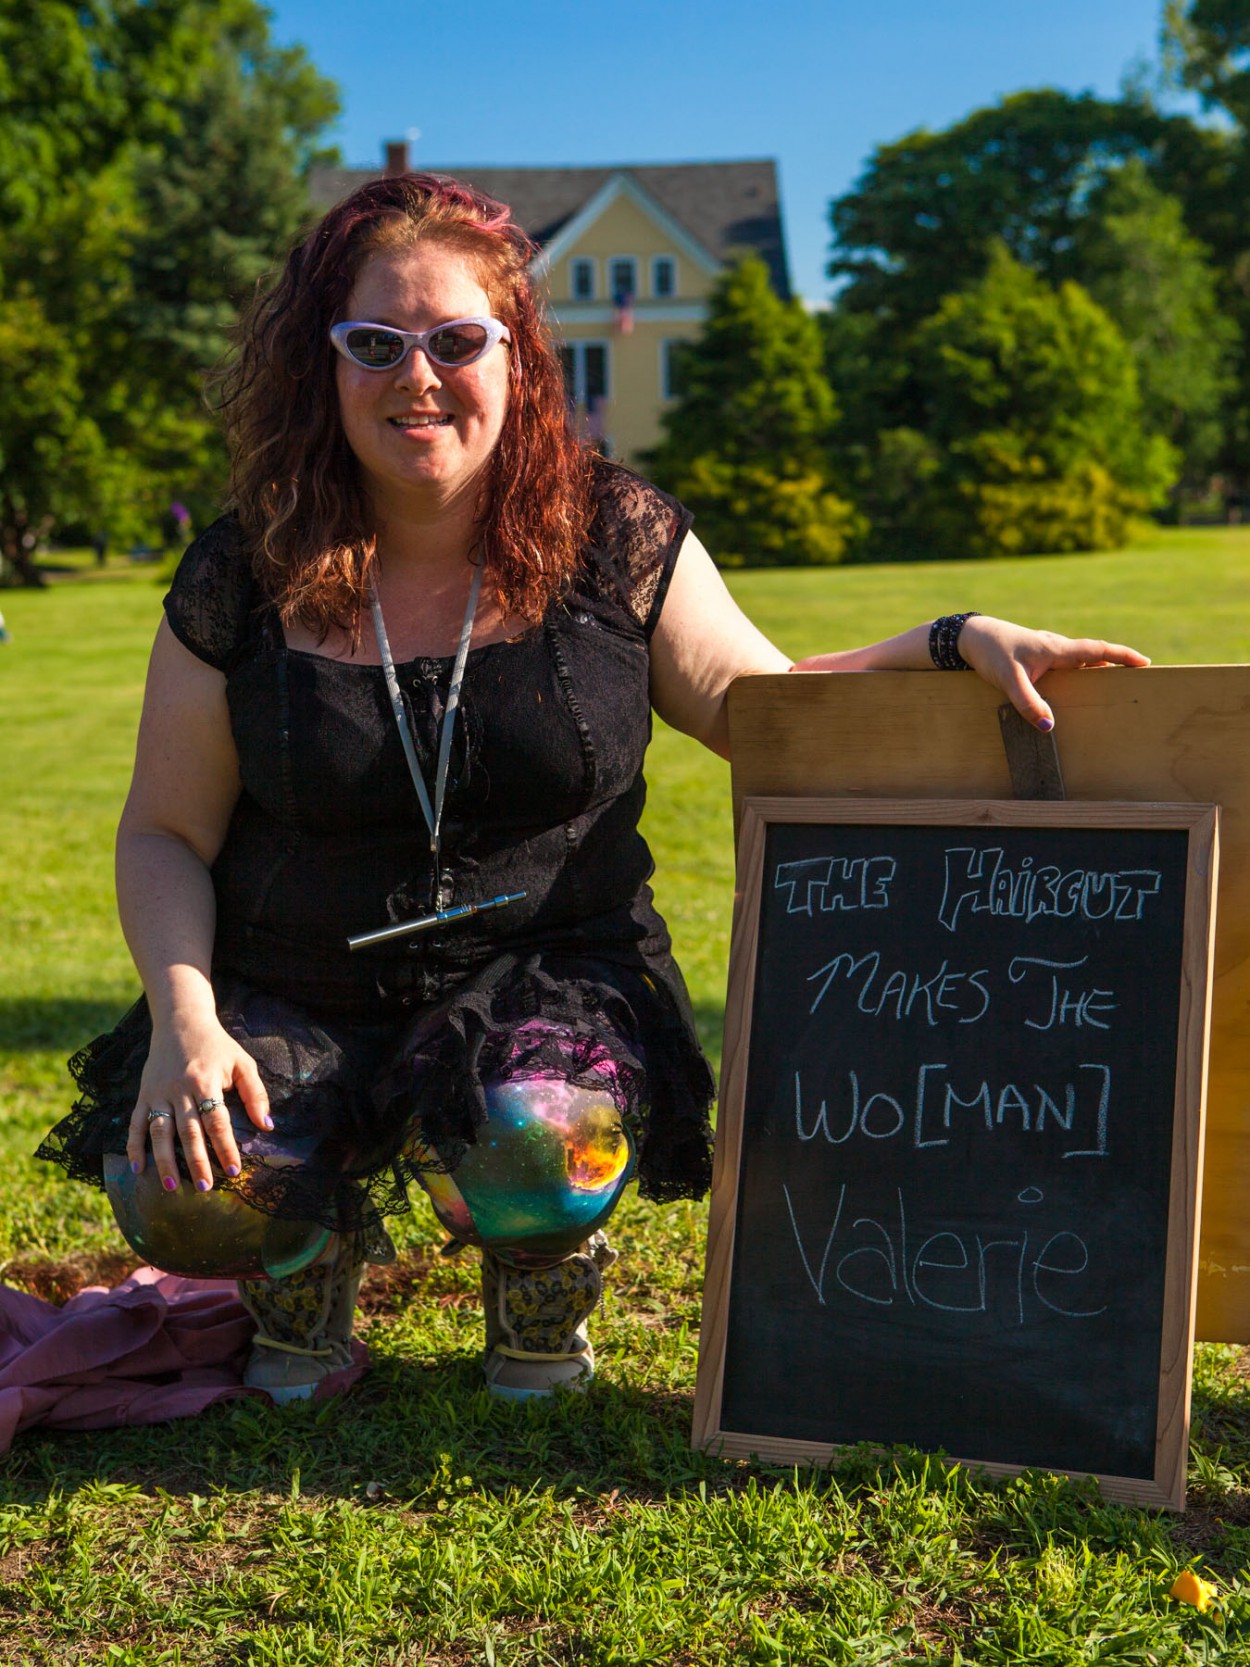 THE HAiRCUT
MAKES THE
WO[MAN]
Valerie